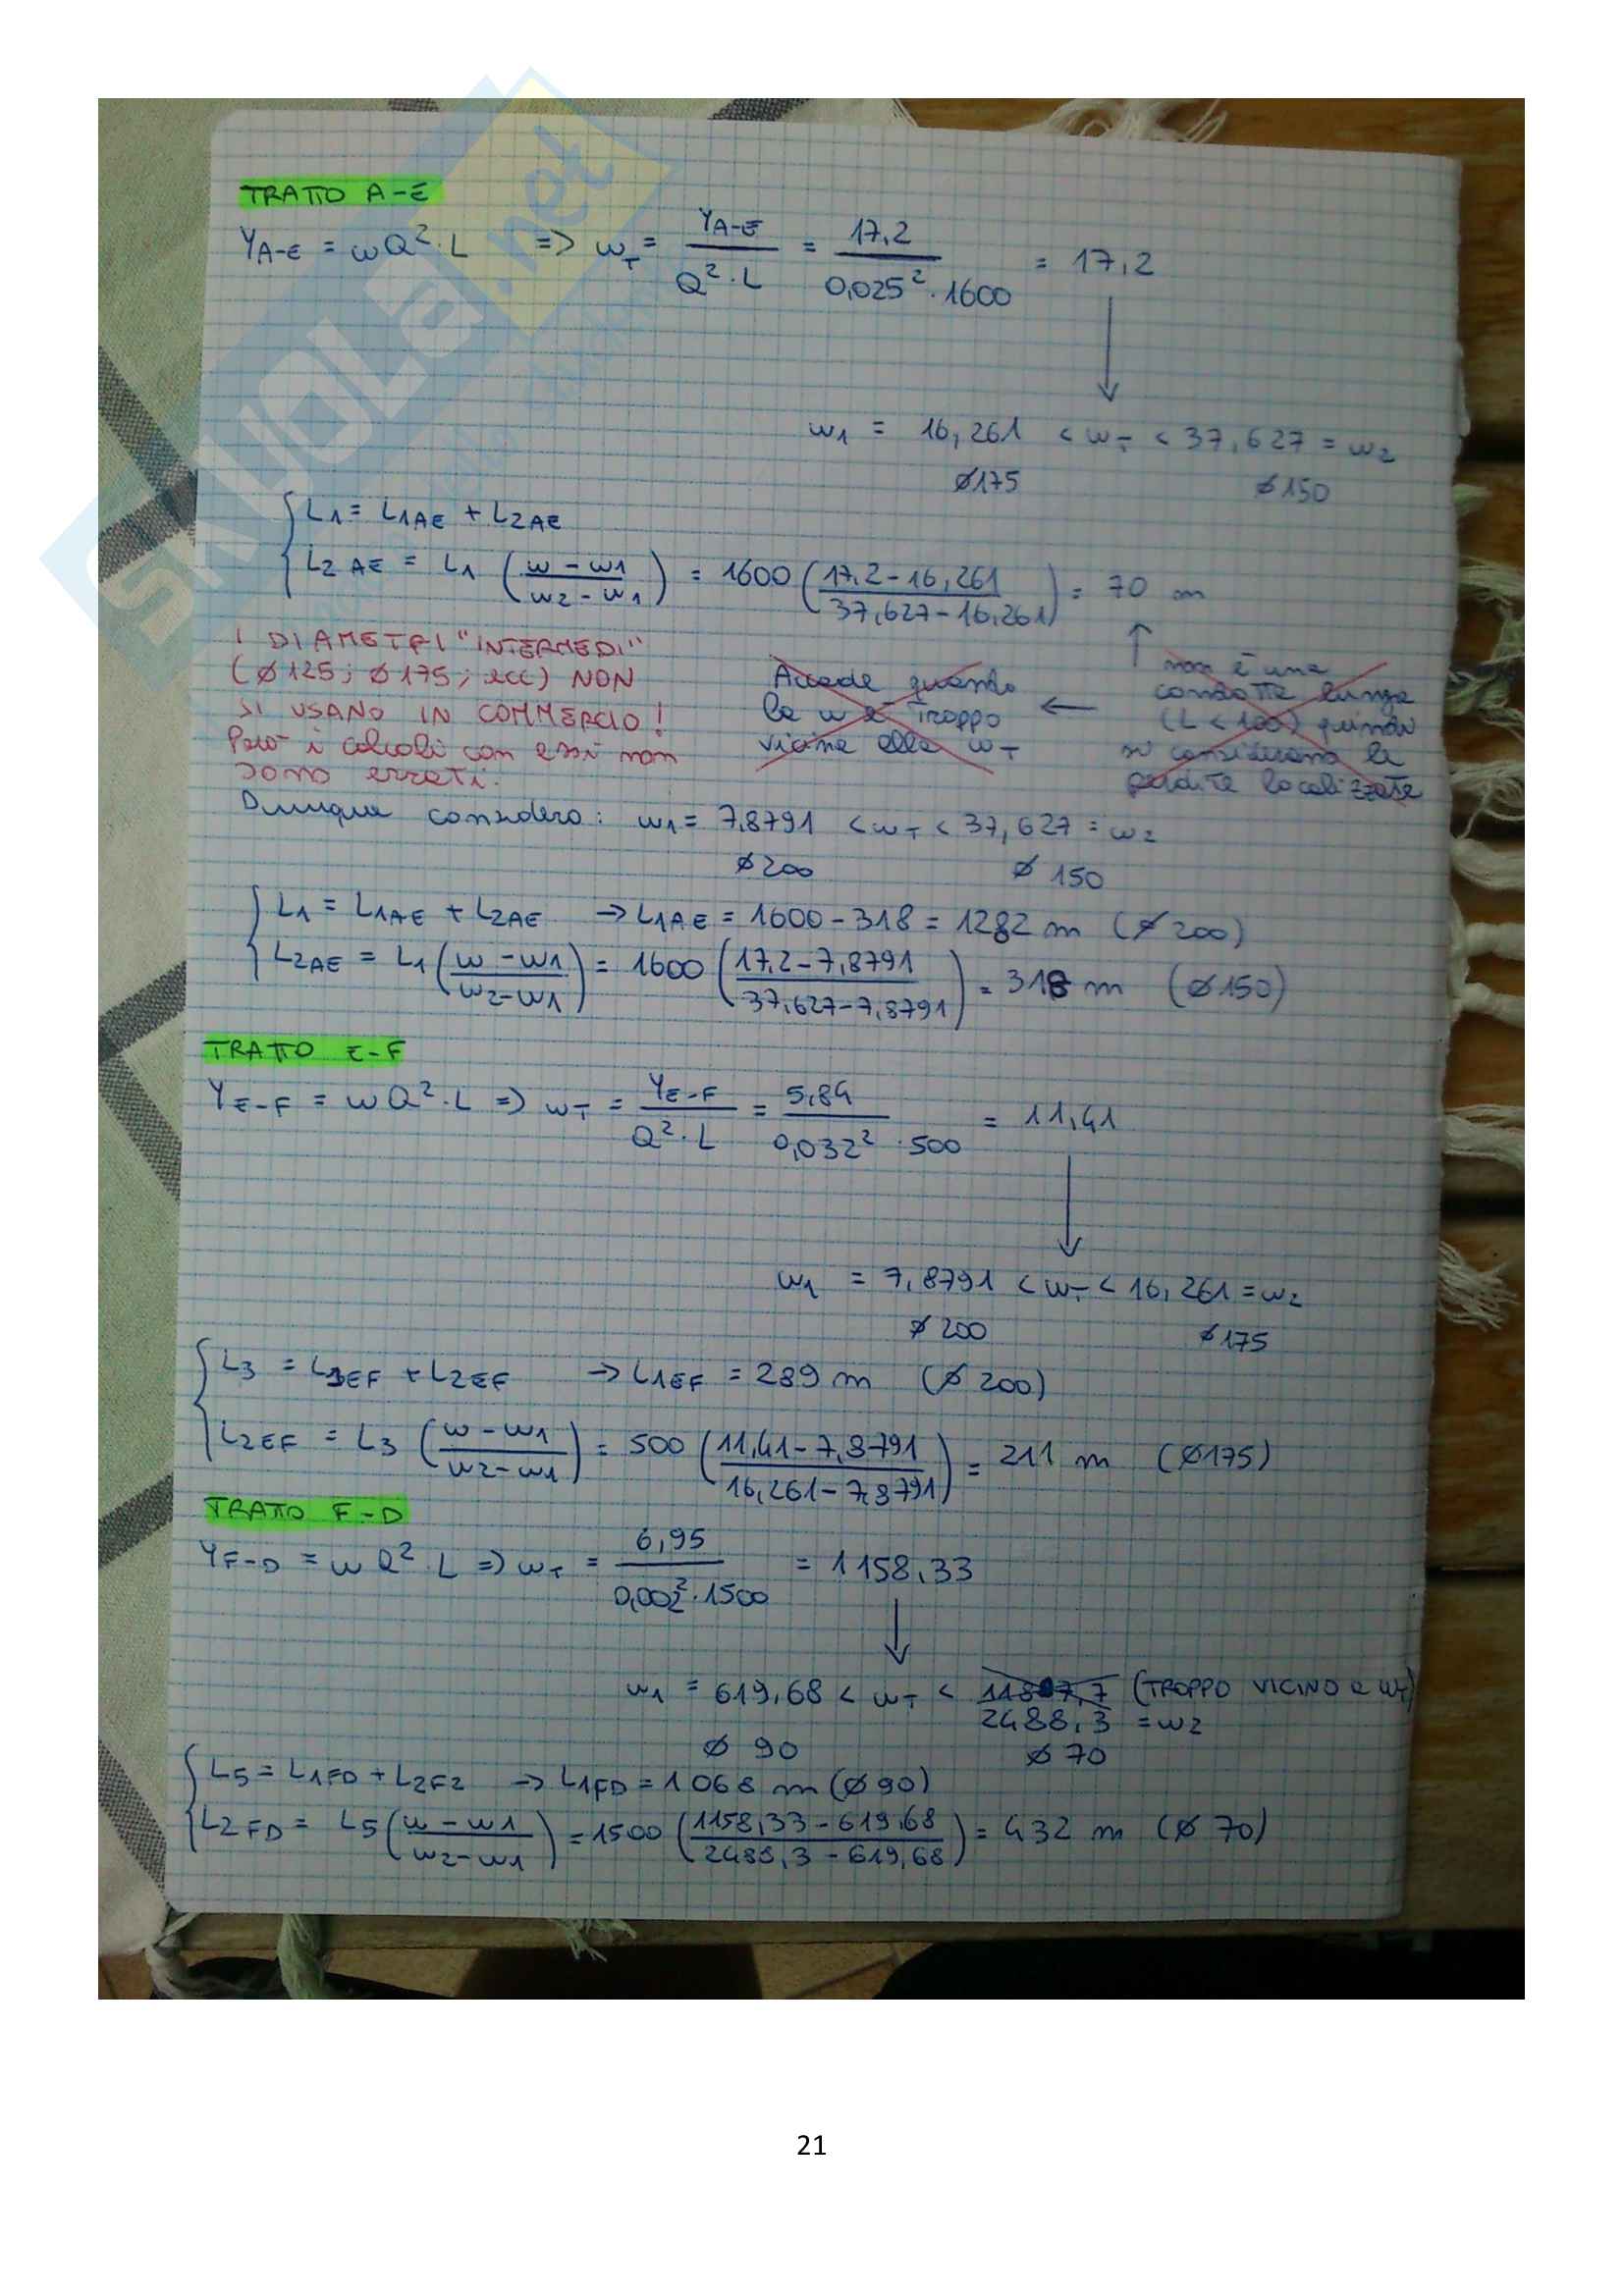 TRATTO A-E
YA-E = wQ²·L => wT = YA-E / Q²·L = 17,2 / 0,025²·1600 = 17,2
w1 = 16,261 < wT < 37,627 = w2
ø175 ø150
L1 = L1AE + L2AE
L2AE = L1 (w-w1 / w2-w1) = 1600 (17,2-16,261 / 37,627-16,261) = 70 m
I DIAMETRI "INTERMEDI"
(ø125; ø175; ecc) NON
SI USANO IN COMMERCIO!
Però i calcoli con essi non
sono errati.
Accade quando
la w è troppo
vicina alla wT
non è una
condotta lunga
(L < 100) quindi
si considerano le
perdite localizzate
Dunque considero: w1 = 7,8791 < wT < 37,627 = w2
ø200 ø 150
L1 = L1AE + L2AE → L1AE = 1600-318 = 1282 m (ø200)
L2AE = L1 (w-w1 / w2-w1) = 1600 (17,2-7,8791 / 37,627-7,8791) = 318 m (ø150)
TRATTO E-F
YE-F = wQ²·L => wT = YE-F / Q²·L = 5,84 / 0,032²·500 = 11,41
w1 = 7,8791 < wT < 16,261 = w2
ø 200 ø175
L3 = L1EF + L2EF → L1EF = 289 m (ø 200)
L2EF = L3 (w-w1 / w2-w1) = 500 (11,41-7,8791 / 16,261-7,8791) = 211 m (ø175)
TRATTO F-D
YF-D = wQ²·L => wT = 6,95 / 0,002²·1500 = 1158,33
w1 = 619,68 < wT < (TROPPO VICINO a wT)
2488,3 = w2
ø 90 ø 70
L5 = L1FD + L2F2 → L1FD = 1068 m (ø90)
L2FD = L5 (w-w1 / w2-w1) = 1500 (1158,33-619,68 / 2488,3-619,68) = 432 m (ø 70)
SKUOLA.net
21